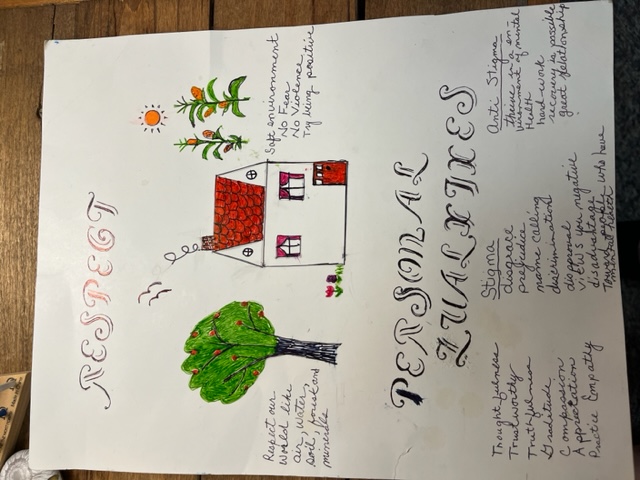 RESPECT
Respect our
World like
air, water,
soil, forest and
minerals
Safe environment
No Fear
No Violence
Try being positive
PERSONAL
QUALITIES
Thoughtfulness
Trustworthy
Truthfulness
Gratitude
Compassion
Appreciation
Practice Empathy
Stigma
disgrace
prejudice
name calling
discriminations
disapproval
views you negative
disadvantage
who have
Anti Stigma
theme is a en-
vironment of mental
Health
hard-work
recovery is possible
great relationship